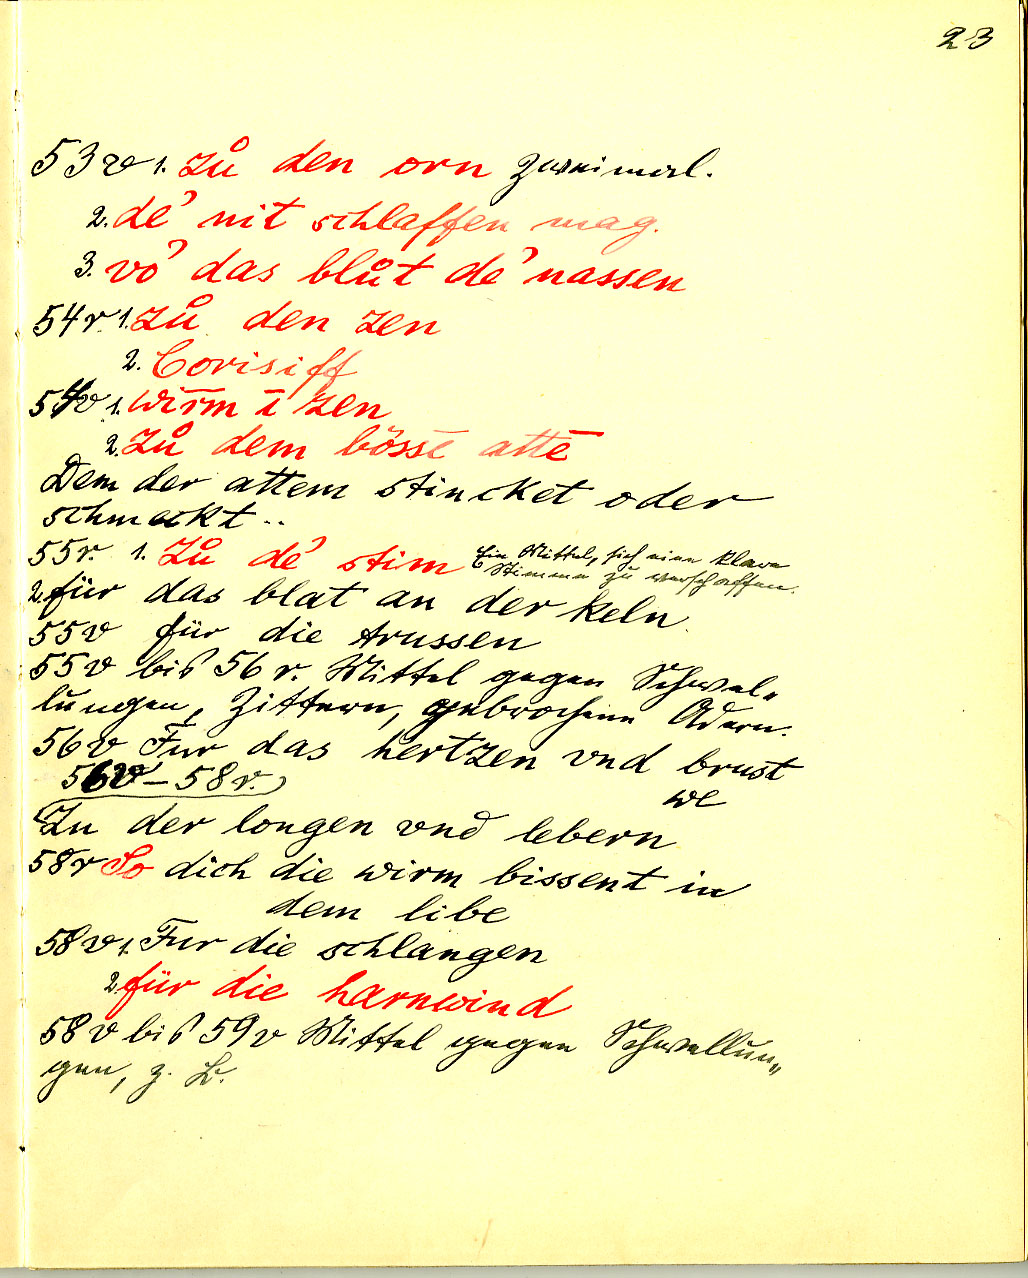 23
53v 1. zů den orn zweimal.
2. de᾽ nit schlaffen mag.
3. vo᾽ das blůt de᾽ nassen
54r. 1. zů den zen
2. Corisiff
54v 1. wirm ī zen
2. Zů dem bössē attē
Dem der attem stincket oder
schmeckt..
55r. 1. Zů de᾽ stim Ein Mittel, sich eine klare
Stimme zu verschaffen.
2. für das blat an der keln
55v für die trussen
55v bis 56r. Mittel gegen Schwel-
lungen, Zittern, gebrochene Adern.
56v Fur das hertzen vnd brust
we
56v – 58r.
Zu der longen vnd lebern
58r So dich die wirm bissent in
dem libe
58v 1. Fur die schlangen
2. für die harnwind
58v bis 59v Mittel gegen Schwellun-
gen, z. B.